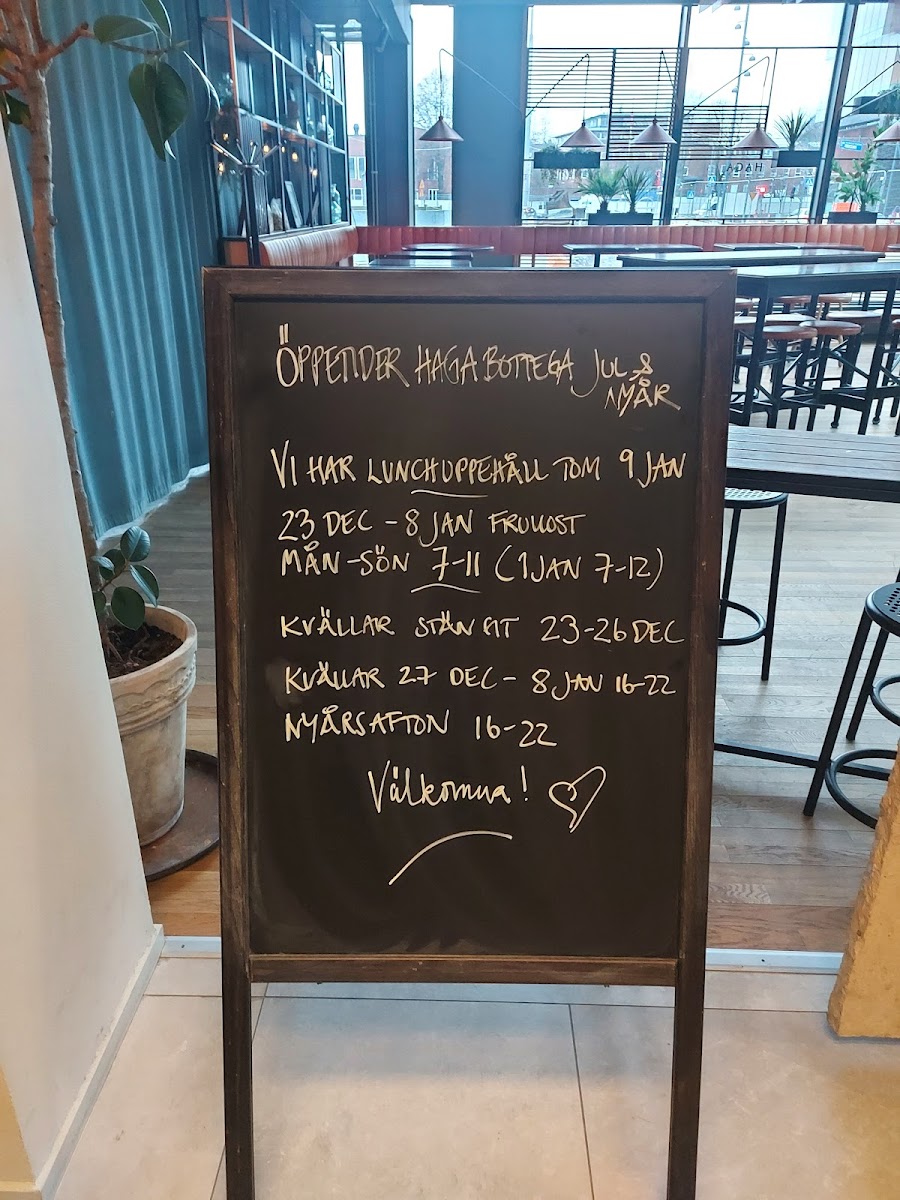 ÖPPETIDER HAGA BOTTEGA JUL &
NYÅR
VI HAR LUNCHUPPEHÅLL TOM 9 JAN
23 DEC - 8 JAN FRUKOST
MÅN-SÖN 7-11 (1 JAN 7-12)
KVÄLLAR STÄNGT 23-26 DEC
KVÄLLAR 27 DEC - 8 JAN 16-22
NYÅRSAFTON 16-22
Välkomna!